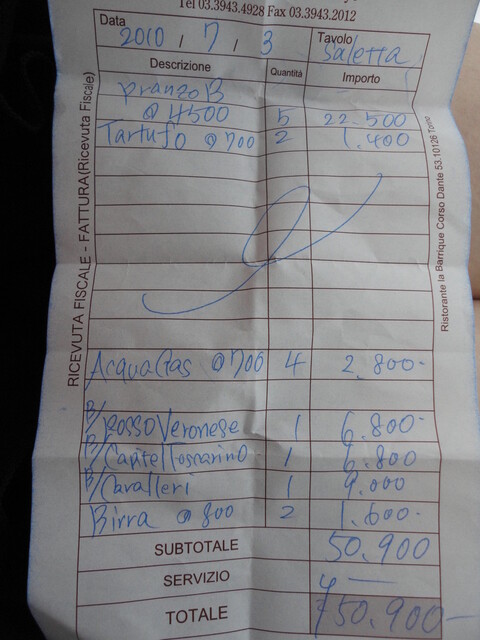 Tel 03.3943.4928 Fax 03.3943.2012
Data 2010 / 7 / 3 Tavolo Saletta
Descrizione Quantità Importo
pranzo B
@ 4500 5 22.500
Tartufo @ 700 2 1.400
Acqua Gas @ 700 4 2.800-
B/ROSSO Veronese 1 6.800-
B/Capitel 1 6.800
B/Cavalleri 1 9.000
Birra @ 800 2 1.600-
SUBTOTALE 50.900
SERVIZIO
TOTALE ¥50.900-
RICEVUTA FISCALE - FATTURA (Ricevuta Fiscale)
Ristorante la Barrique Corso Dante 53.10126 Torino